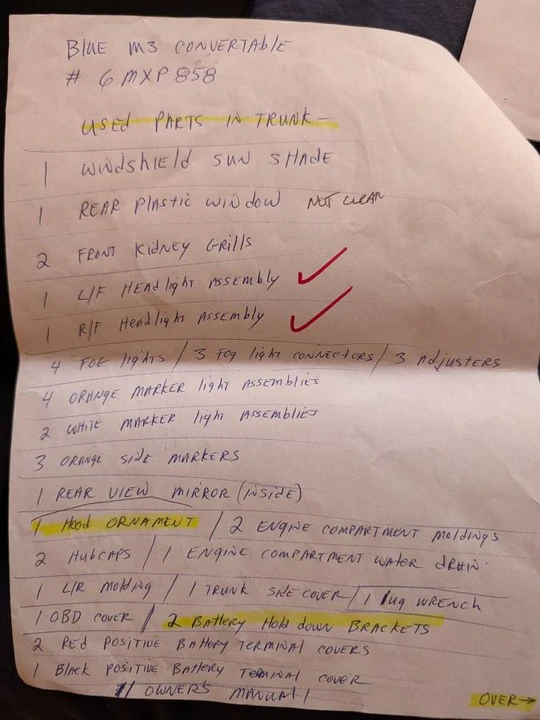 BLUE M3 CONVERTABLE
# 6MXP858
USED PARTS IN TRUNK —
1 WINDSHIELD SUN SHADE
1 REAR PLASTIC WINDOW NOT CLEAR
2 FRONT KIDNEY GRILLS
1 L/F HEADlight ASSEMBLY
1 R/F HEADlight ASSEMBLY
4 FOG lights / 3 FOG light CONNECTORS / 3 Adjusters
4 ORANGE MARKER light ASSEMBLIES
2 WHITE MARKER light ASSEMBLIES
3 ORANGE SIDE MARKERS
1 REAR VIEW MIRROR (INSIDE)
1 HOOD ORNAMENT / 2 ENGINE COMPARTMENT MOLDINGS
2 HUBCAPS / 1 ENGINE COMPARTMENT WATER DRAIN
1 L/R MOLDING / 1 TRUNK SIDE COVER / 1 lug WRENCH
1 OBD COVER / 2 BATTERY HOLD DOWN BRACKETS
2 RED POSITIVE BATTERY TERMINAL COVERS
1 BLACK POSITIVE BATTERY TERMINAL COVER
1 OWNER'S MANUAL
OVER→